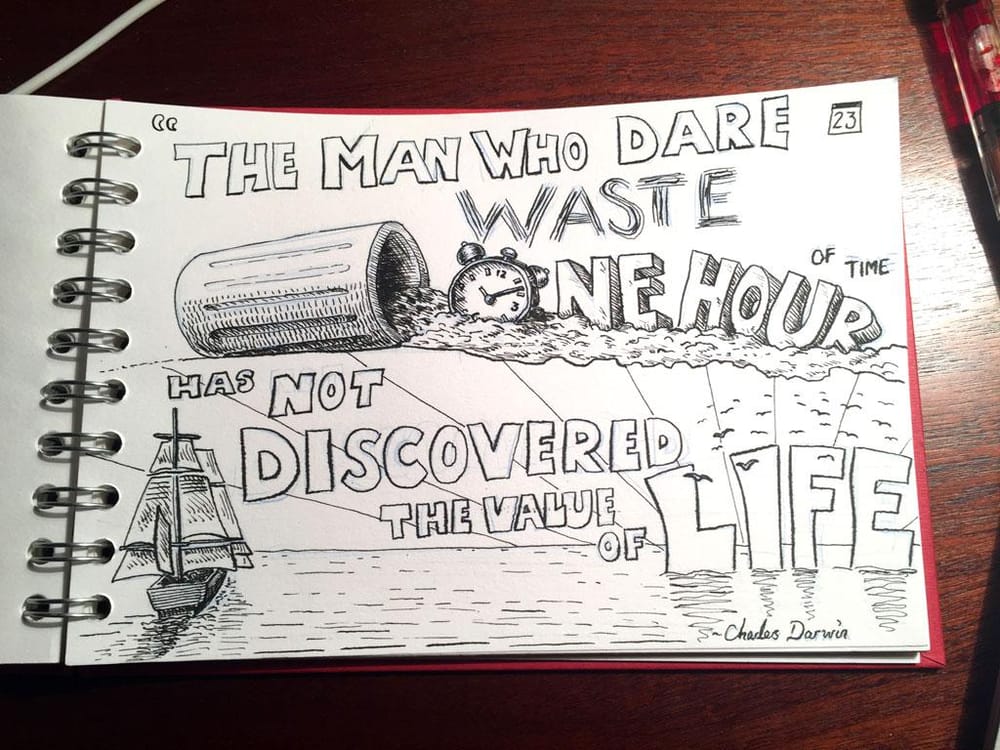 “ THE MAN WHO DARE
23
WASTE
ONE HOUR OF TIME
HAS NOT
DISCOVERED
THE VALUE
OF LIFE
~Charles Darwin